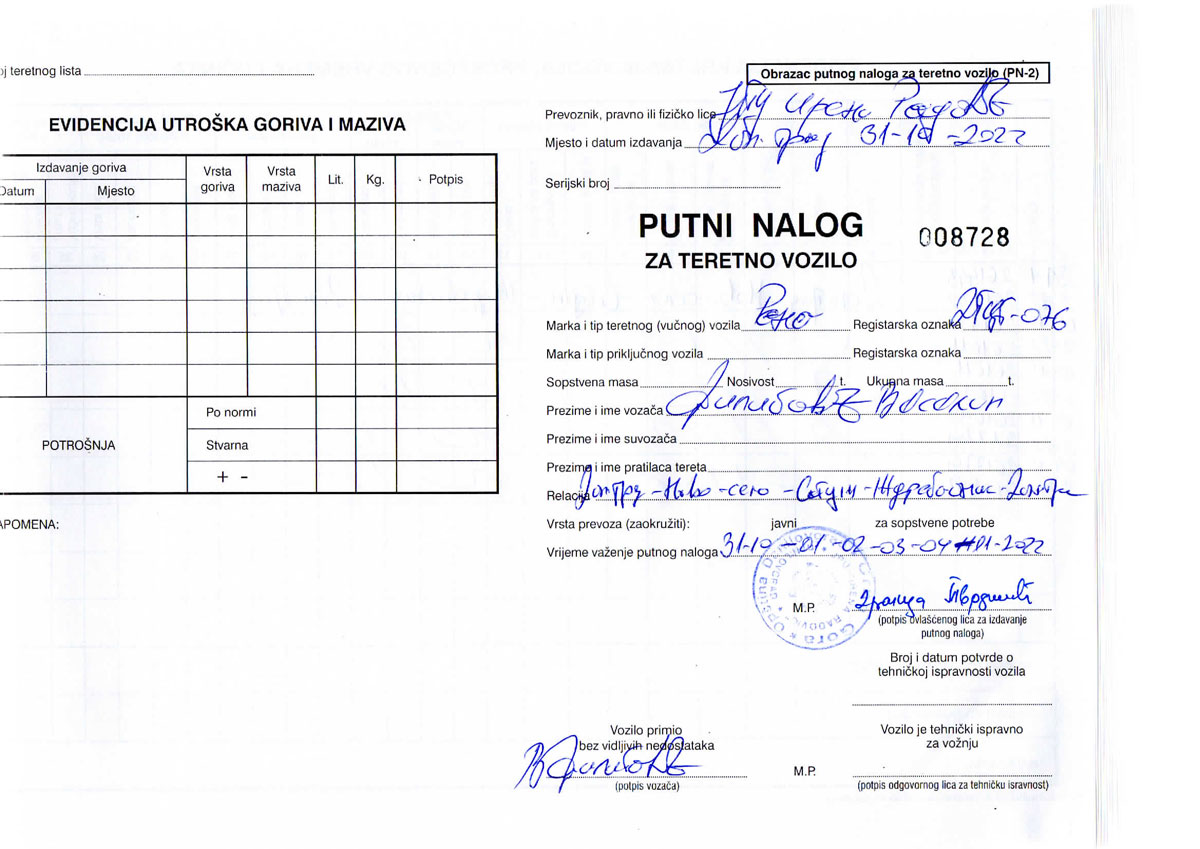 oj teretnog lista
EVIDENCIJA UTROŠKA GORIVA I MAZIVA
Izdavanje goriva
Datum
Mjesto
Vrsta goriva
Vrsta maziva
Lit.
Kg.
Potpis
POTROŠNJA
Po normi
Stvarna
+ -
APOMENA:
Obrazac putnog naloga za teretno vozilo (PN-2)
Prevoznik, pravno ili fizičko lice ЈПУ Ирена Радовић
Mjesto i datum izdavanja 31-10-2022
Serijski broj
PUTNI NALOG
008728
ZA TERETNO VOZILO
Marka i tip teretnog (vučnog) vozila Рено Registarska oznaka -076
Marka i tip priključnog vozila Registarska oznaka
Sopstvena masa Nosivost t. Ukupna masa t.
Prezime i ime vozača Филиповић
Prezime i ime suvozača
Prezime i ime pratilaca tereta
Relacija -Ново-село
Vrsta prevoza (zaokružiti): javni za sopstvene potrebe
Vrijeme važenje putnog naloga 31-10-01-02-03-04 -2022
M.P.
(potpis ovlašćenog lica za izdavanje
putnog naloga)
Broj i datum potvrde o
tehničkoj ispravnosti vozila
Vozilo primio
bez vidljivih nedostataka
В Филиповић
(potpis vozača)
M.P.
Vozilo je tehnički ispravno
za vožnju
(potpis odgovornog lica za tehničku isravnost)